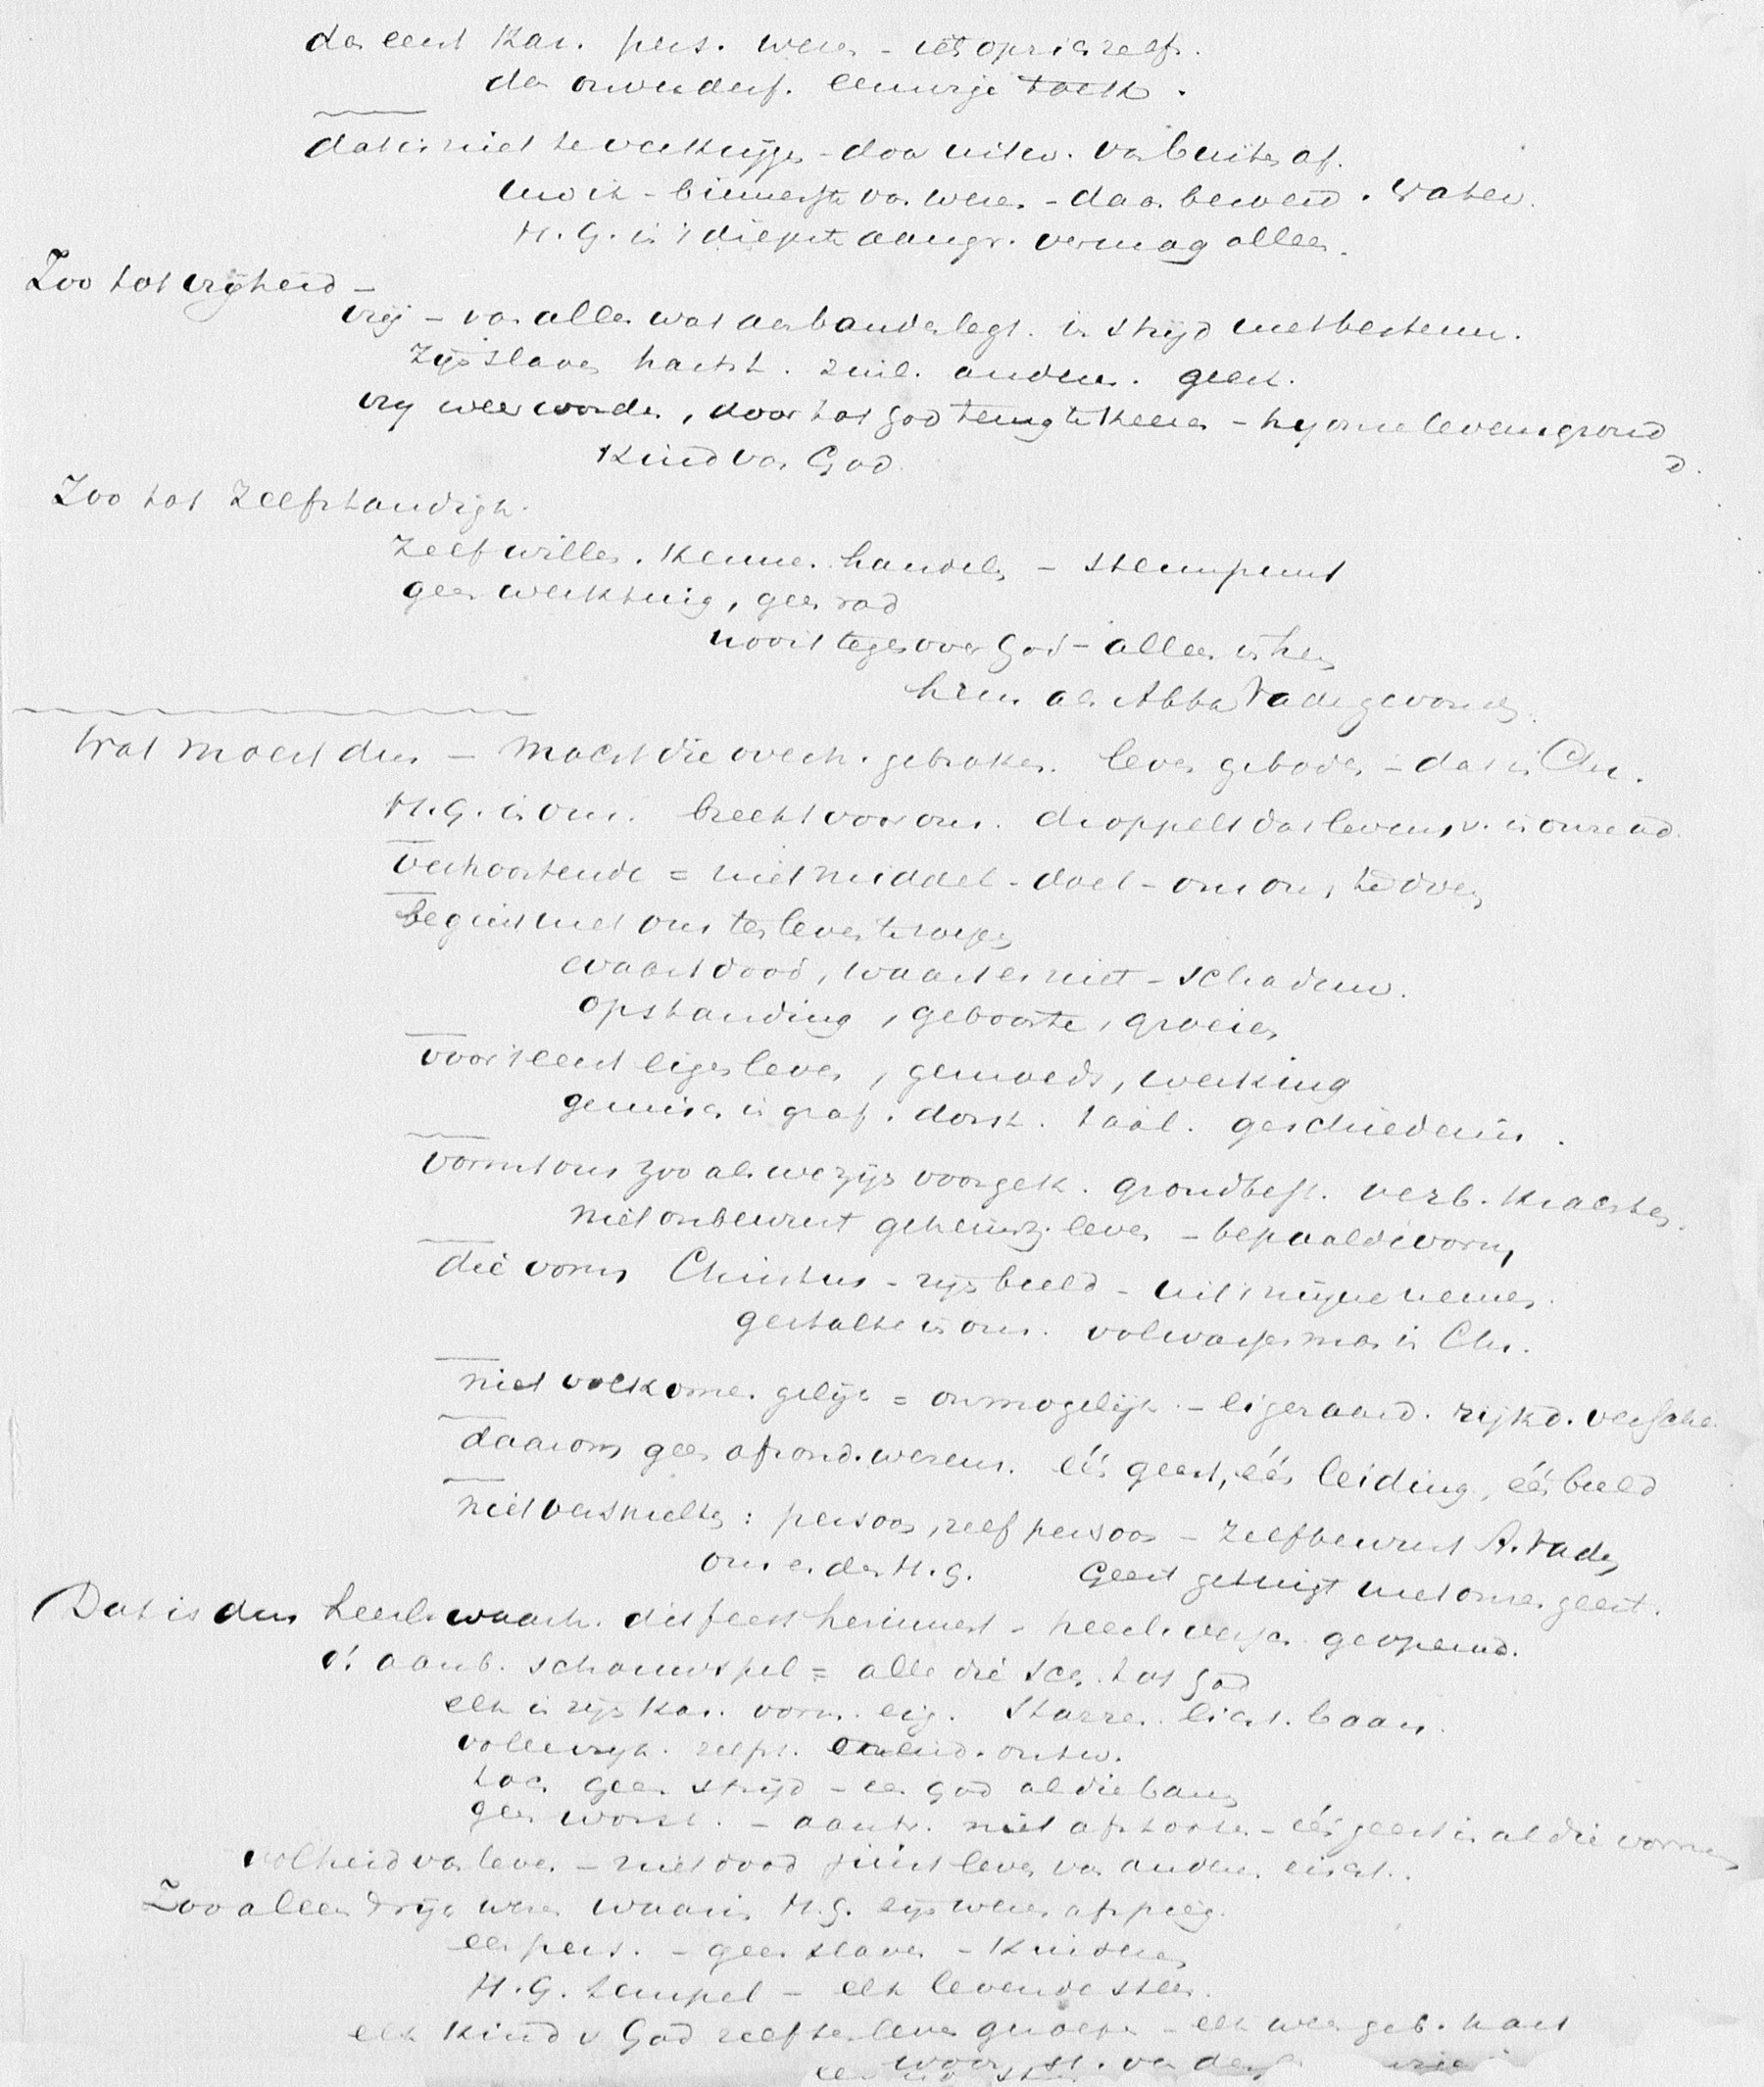 dan eerst kar. pers. wezen - iets op zich zelf.
dan onverderf. eeuwige
dat is niet te verkrijgen - door uitw. van buiten af.
binnenste van wezen - daar bewerk. water
H. G. in 't diepste aangr. vermag alleen.
Zoo tot vrijheid -
vrij - van alles wat aan banden legt. in strijd met bestemm.
zijn slaven hartst. zinl. anderen. geest.
vrij weer worden, door tot God terug te keeren - hij onze levensgrond
Kind van God
Zoo tot zelfstandigh.
zelf willen. kennen. handelen - steunpunt
geen werktuig, geen rad
nooit tegenover God - alleen in hem
hem als Abba Vader gevonden.
Wat moest dus - moest die overh. gebroken. leven geboden - dat in Chr.
H. G. in ons. breekt voor ons. droppelt dat levens v. in onze ad.
niet middel - doel - om ons te doen
begint met ons ten leven te roepen
waart dood, waart er niet - schaduw.
opstanding, geboorte, groeien
voor 't eerst eigen leven, gemoeds, werking
gemis in graf. dorst. taal. geschiedenis.
vormt ons zooals we zijn voorgek. grondbest. verb. krachten.
niet onbewust geheimz. leven - bepaalde vorm,
die vorm Christus - zijn beeld - uit 't mijne nemen.
gestalte in ons. volwassen man in Chr.
niet volkomen gelijk = onmogelijk. - eigen aard. rijkd. versche.
daarom geen afzond. wezens. één geest, één leiding, één beeld
niet versmelten: persoon, zelf persoon - zelfbewust A. Vader,
onz. en der H. G. Geest getuigt met onze geest.
Dat is dus heerl. waarh. dit feest herinnert - heerl. versch. geopend.
o! aanb. schouwspel = alle die tot God
elk in zijn kar. vorm. eig. Starren. licht. baan.
volle vrijh. zelfst. ontw.
toch geen strijd - een God al die banen
geen worst. - aantr. niet afstooten - één geest in al die vormen
volheid van leven - niet dood juist leven van anderen eischt.
Zoo alleen drijft wezen waarin H. G. zijn wezen afspieg.
een pers. - geen slaven - kinderen
H. G. tempel - elk levende steen.
elk kind v God zelf ten leven geroepen - elk weer geb. hart